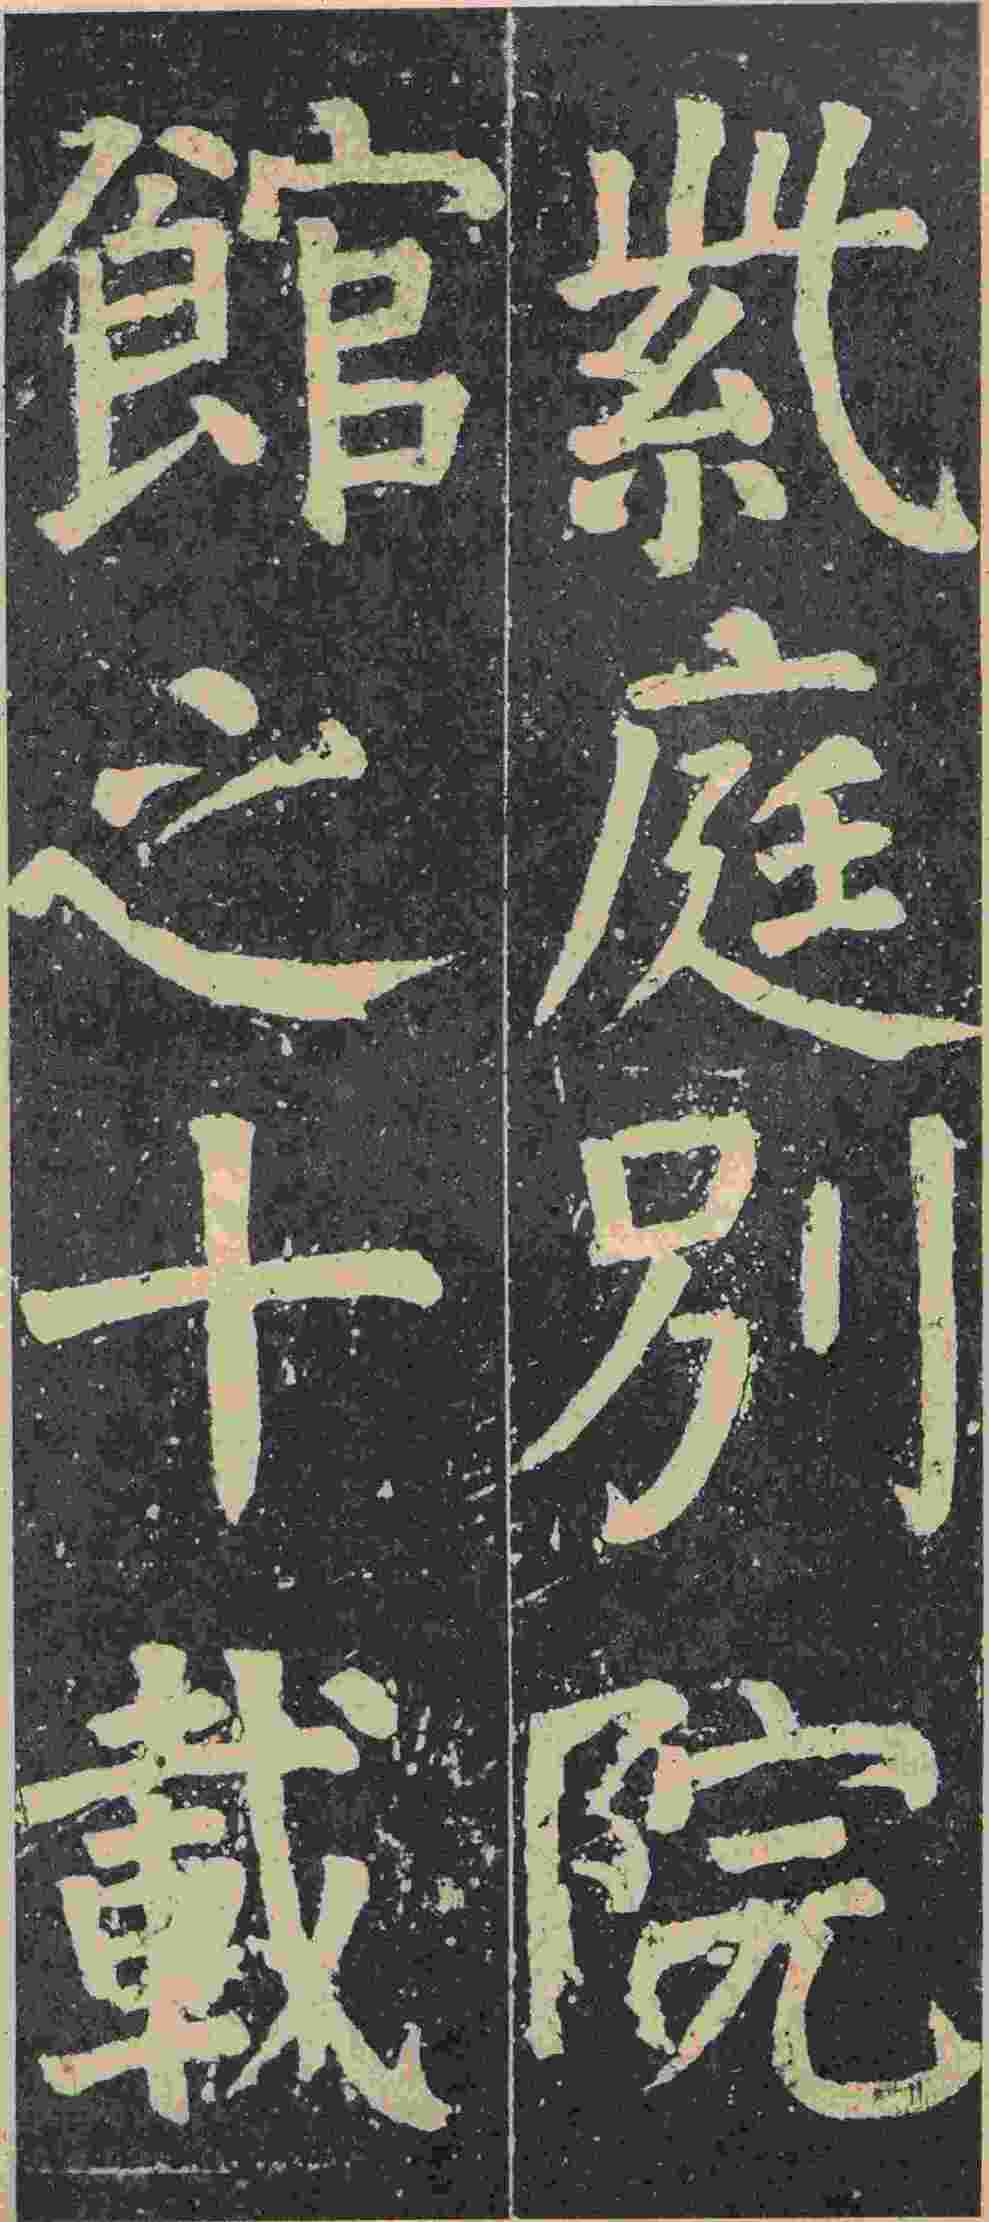 紫庭別院
館之十載